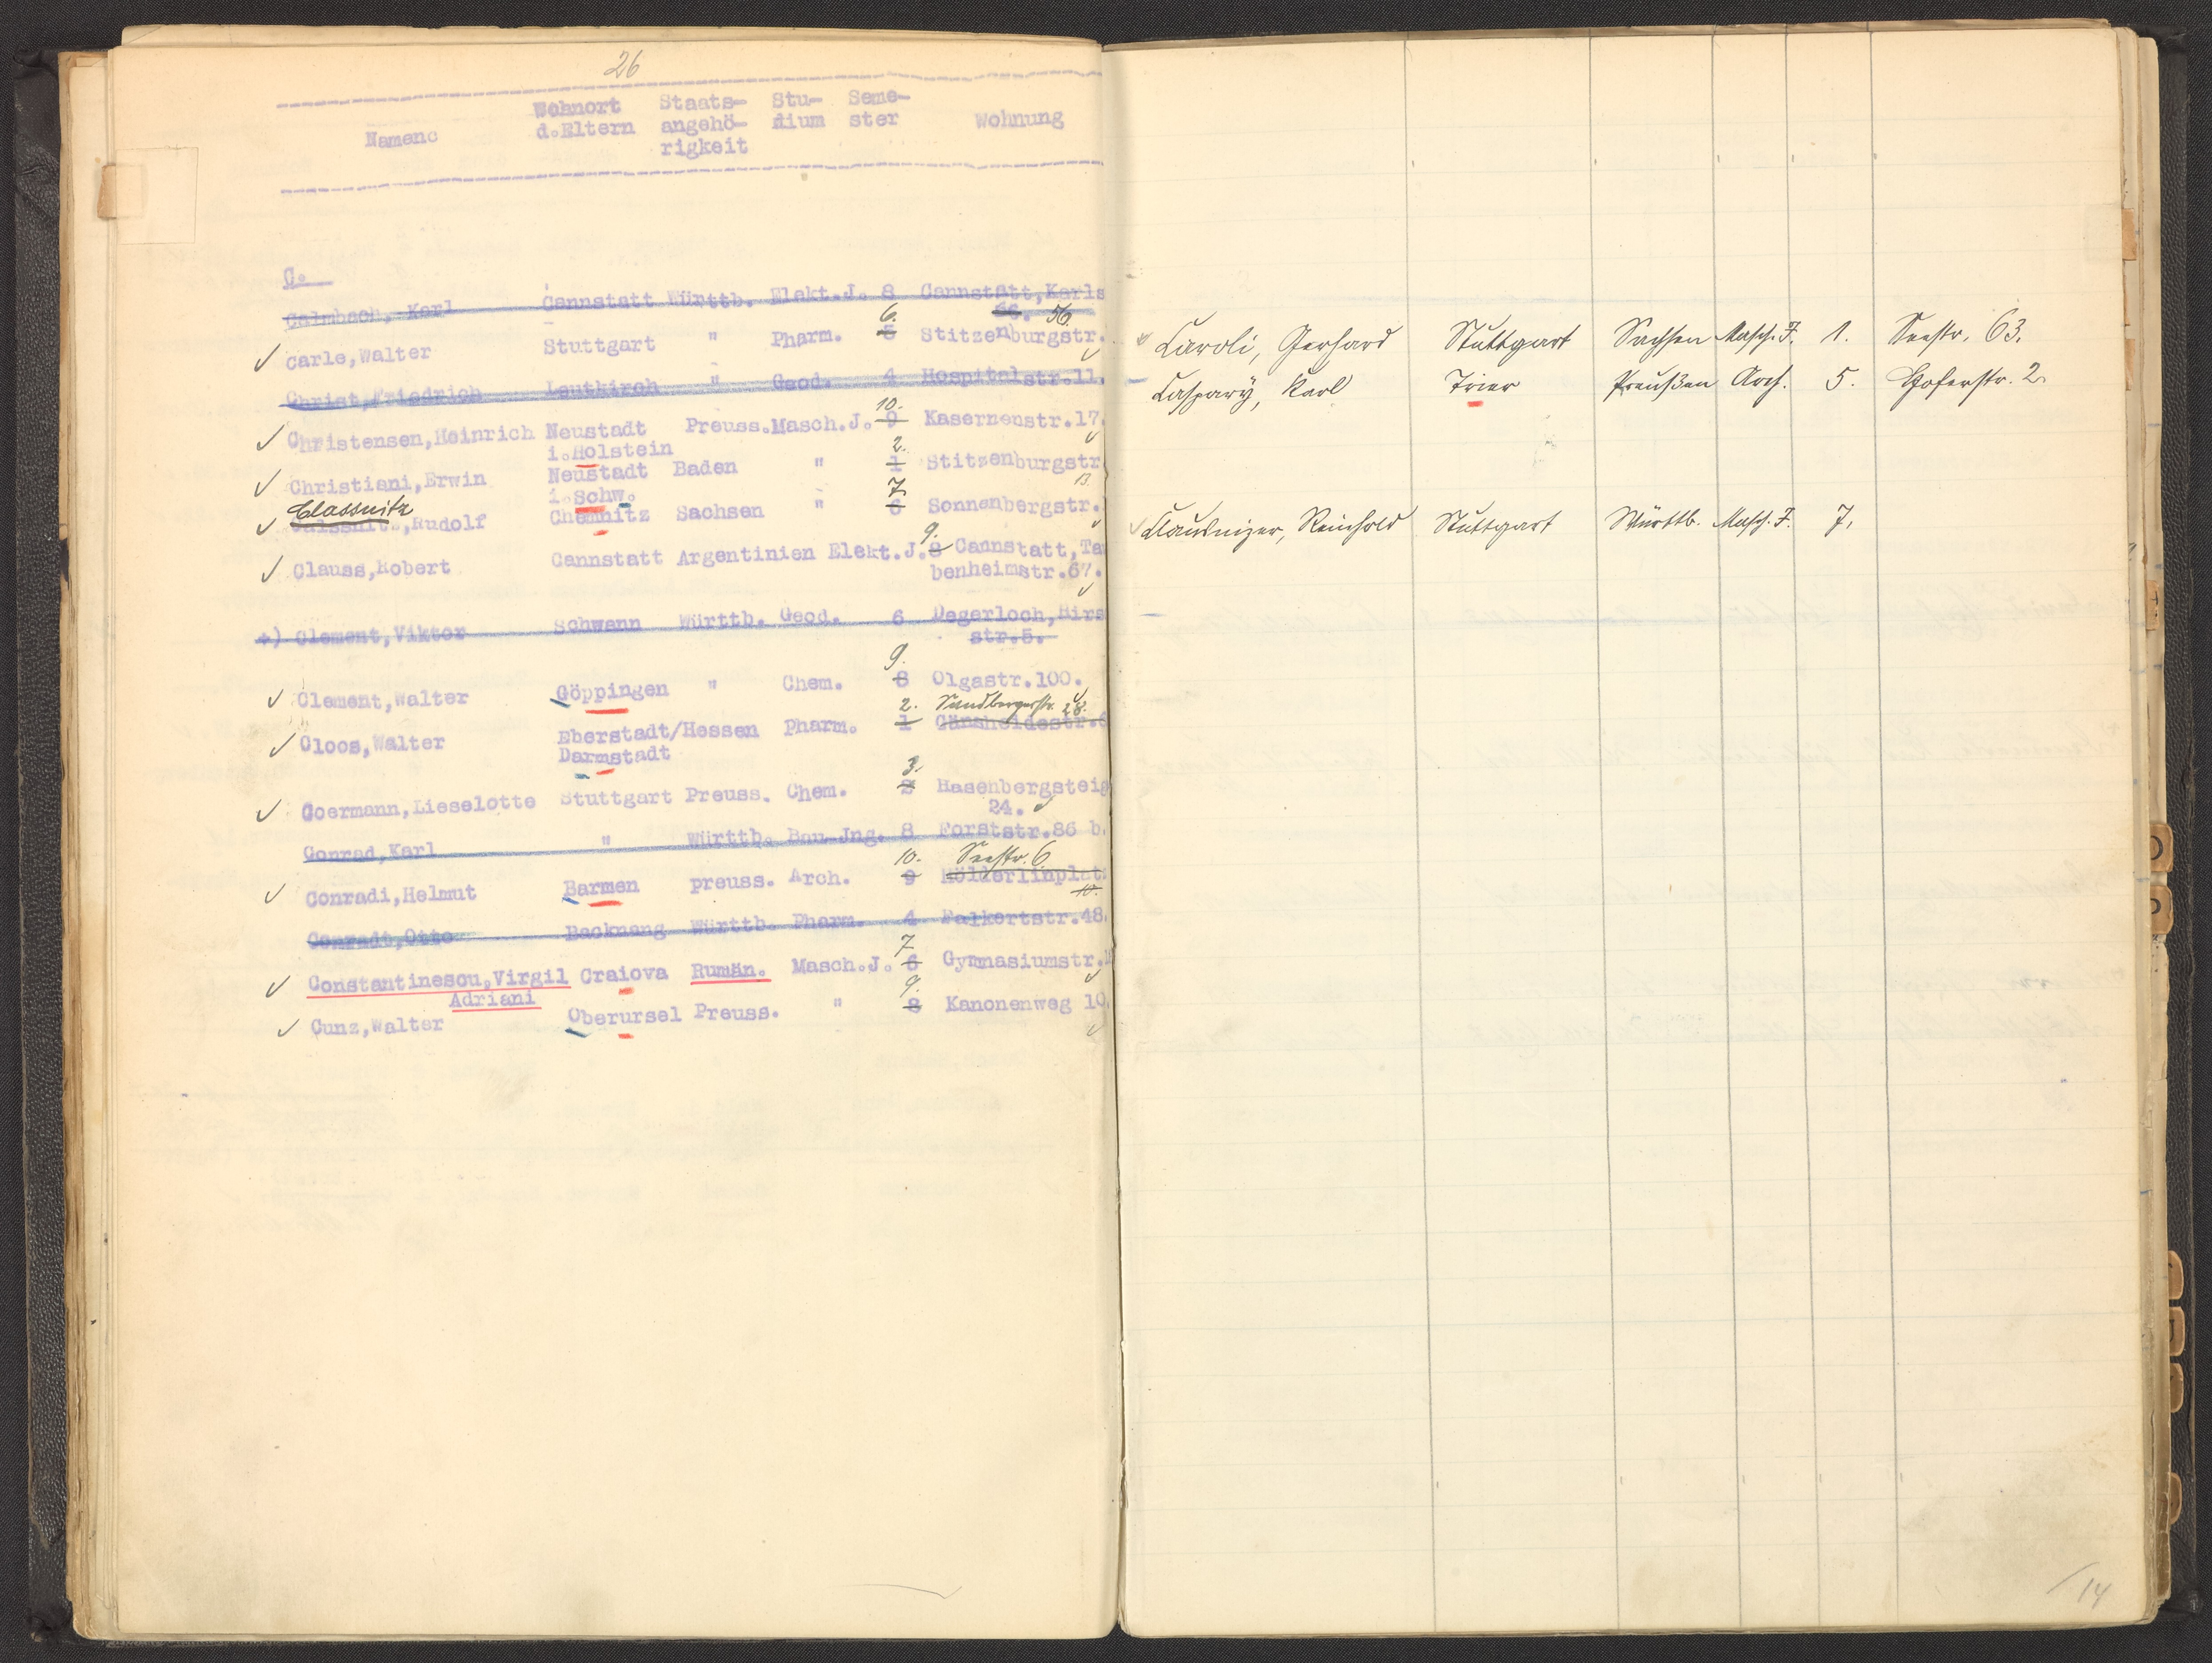 26
Namenc Wohnort d.Eltern Staats-angehö-rigkeit Stu-dium Seme-ster Wohnung
C.
Calmbach, Karl Cannstatt Württb. Elekt.J. 8 Cannstatt,Karls
56.
Carle,Walter Stuttgart " Pharm. 5 6. Stitzenburgstr.
Christ,Friedrich Leutkirch " Geod. 4 Hospitalstr.11.
Christensen,Heinrich Neustadt Preuss.Masch.J. 9 10. Kasernenstr.17.
i.Holstein
Christiani,Erwin Neustadt Baden " 1 2. Stitzenburgstr
i.Schw. 13.
Classnitz
Rudolf Chemnitz Sachsen " 6 7. Sonnenbergstr.
Clauss,Robert Cannstatt Argentinien Elekt.J. 8 9. Cannstatt,Ta
benheimstr.67.
+) Clement,Viktor Schwann Württb. Geod. 6 Degerloch,Hirs
str.5.
Clement,Walter Göppingen " Chem. 8 9. Olgastr.100.
28.
Cloos,Walter Eberstadt/Hessen Pharm. 1 2. Gänsheidestr.
Darmstadt
Coermann,Lieselotte Stuttgart Preuss. Chem. 2 3. Hasenbergsteig
24.
Conrad,Karl " Württb. Bau-Jng. 8 Forststr.86 b.
Seestr. 6
Conradi,Helmut Barmen preuss. Arch. 9 10. Hölderlinplat
10.
Conradt,Otto Backnang Württb. Pharm. 4 Falkertstr.48.
Constantinescu,Virgil Craiova Rumän. Masch.J. 6 7 Gymnasiumstr.
Adriani
Cunz,Walter Oberursel Preuss. " 8 9. Kanonenweg 10.
Caroli, Gerhard Stuttgart Sachsen Masch. J. 1. Seestr. 63.
Caspary, Karl Trier Preußen Arch. 5. Hoferstr. 2
Clausnizer, Reinhold Stuttgart Württb. Masch. J. 7.
14